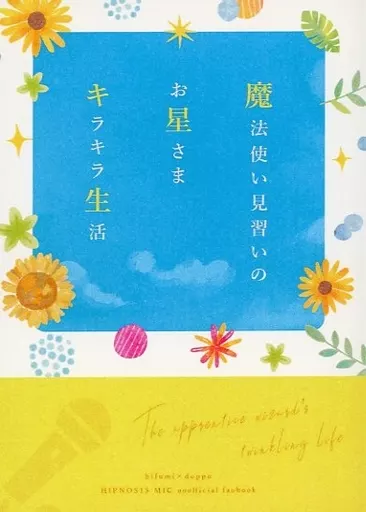 魔法使い見習いの
お星さま
キラキラ生活
The apprentice wizard's
twinkling life
hifumi×doppo
HIPNOSIS MIC unofficial fanbook